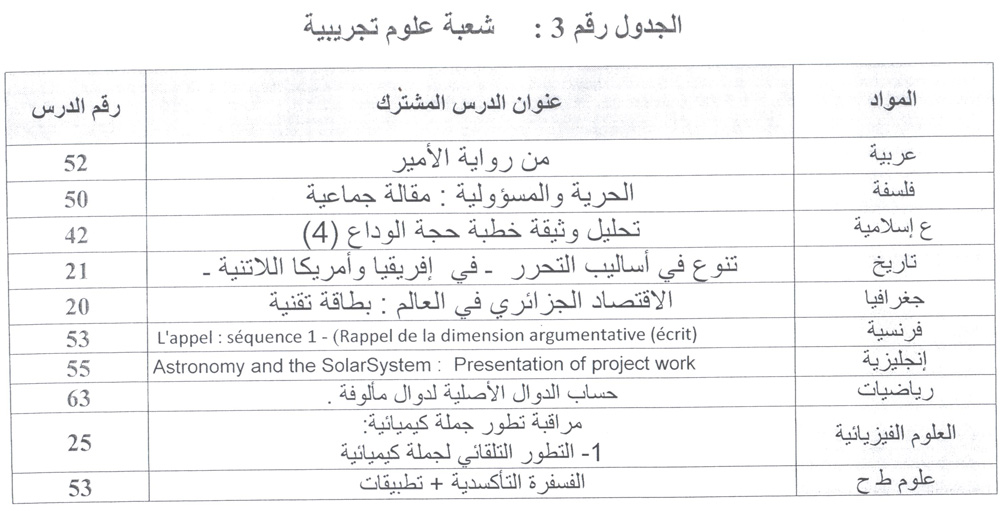 الجدول رقم 3 : شعبة علوم تجريبية
المواد عنوان الدرس المشترك رقم الدرس
عربية من رواية الأمير 52
فلسفة الحرية والمسؤولية : مقالة جماعية 50
ع إسلامية تحليل وثيقة خطبة حجة الوداع (4) 42
تاريخ تنوع في أساليب التحرر - في إفريقيا وأمريكا اللاتنية - 21
جغرافيا الاقتصاد الجزائري في العالم : بطاقة تقنية 20
فرنسية L'appel : séquence 1 - (Rappel de la dimension argumentative (écrit) 53
إنجليزية Astronomy and the SolarSystem : Presentation of project work 55
رياضيات حساب الدوال الأصلية لدوال مألوفة . 63
العلوم الفيزيائية مراقبة تطور جملة كيميائية: 25
1- التطور التلقائي لجملة كيميائية
علوم ط ح الفسفرة التأكسدية + تطبيقات 53